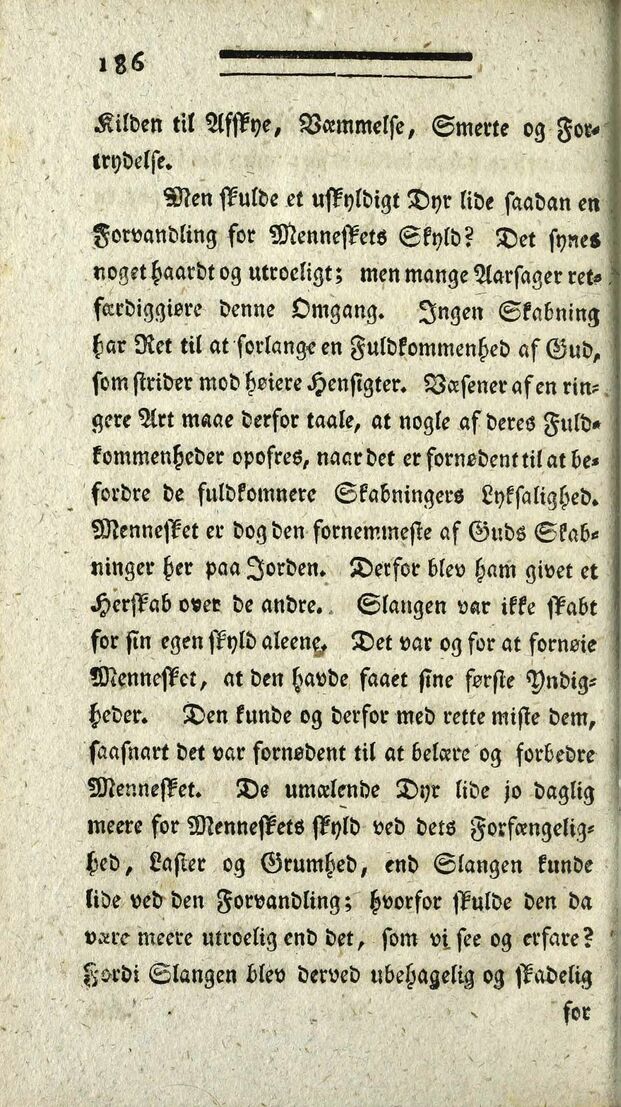 186
Kilden til Afskye, Væmmelse, Smerte og For-
trydelse.
Men skulde et uskyldigt Dyr lide saadan en
Forvandling for Menneskets Skyld? Det synes
noget haardt og utroeligt; men mange Aarsager ret-
færdiggiøre denne Omgang. Ingen Skabning
har Ret til at forlange en Fuldkommenhed af Gud,
som strider mod høiere Hensigter. Væsener af en rin-
gere Art maae derfor taale, at nogle af deres Fuld-
kommenheder opofres, naar det er fornødent til at be-
fordre de fuldkomnere Skabningers Lyksalighed.
Mennesket er dog den fornemmeste af Guds Skab-
ninger her paa Jorden. Derfor blev ham givet et
Herskab over de andre. Slangen var ikke skabt
for sin egen skyld aleene. Det var og for at fornøie
Mennesket, at den havde faaet sine første Yndig-
heder. Den kunde og derfor med rette miste dem,
saasnart det var fornødent til at belære og forbedre
Mennesket. De umælende Dyr lide jo daglig
meere for Menneskets skyld ved dets Forfængelig-
hed, Laster og Grumhed, end Slangen kunde
lide ved den Forvandling; hvorfor skulde den da
være meere utroelig end det, som vi see og erfare?
Fordi Slangen blev derved ubehagelig og skadelig
for